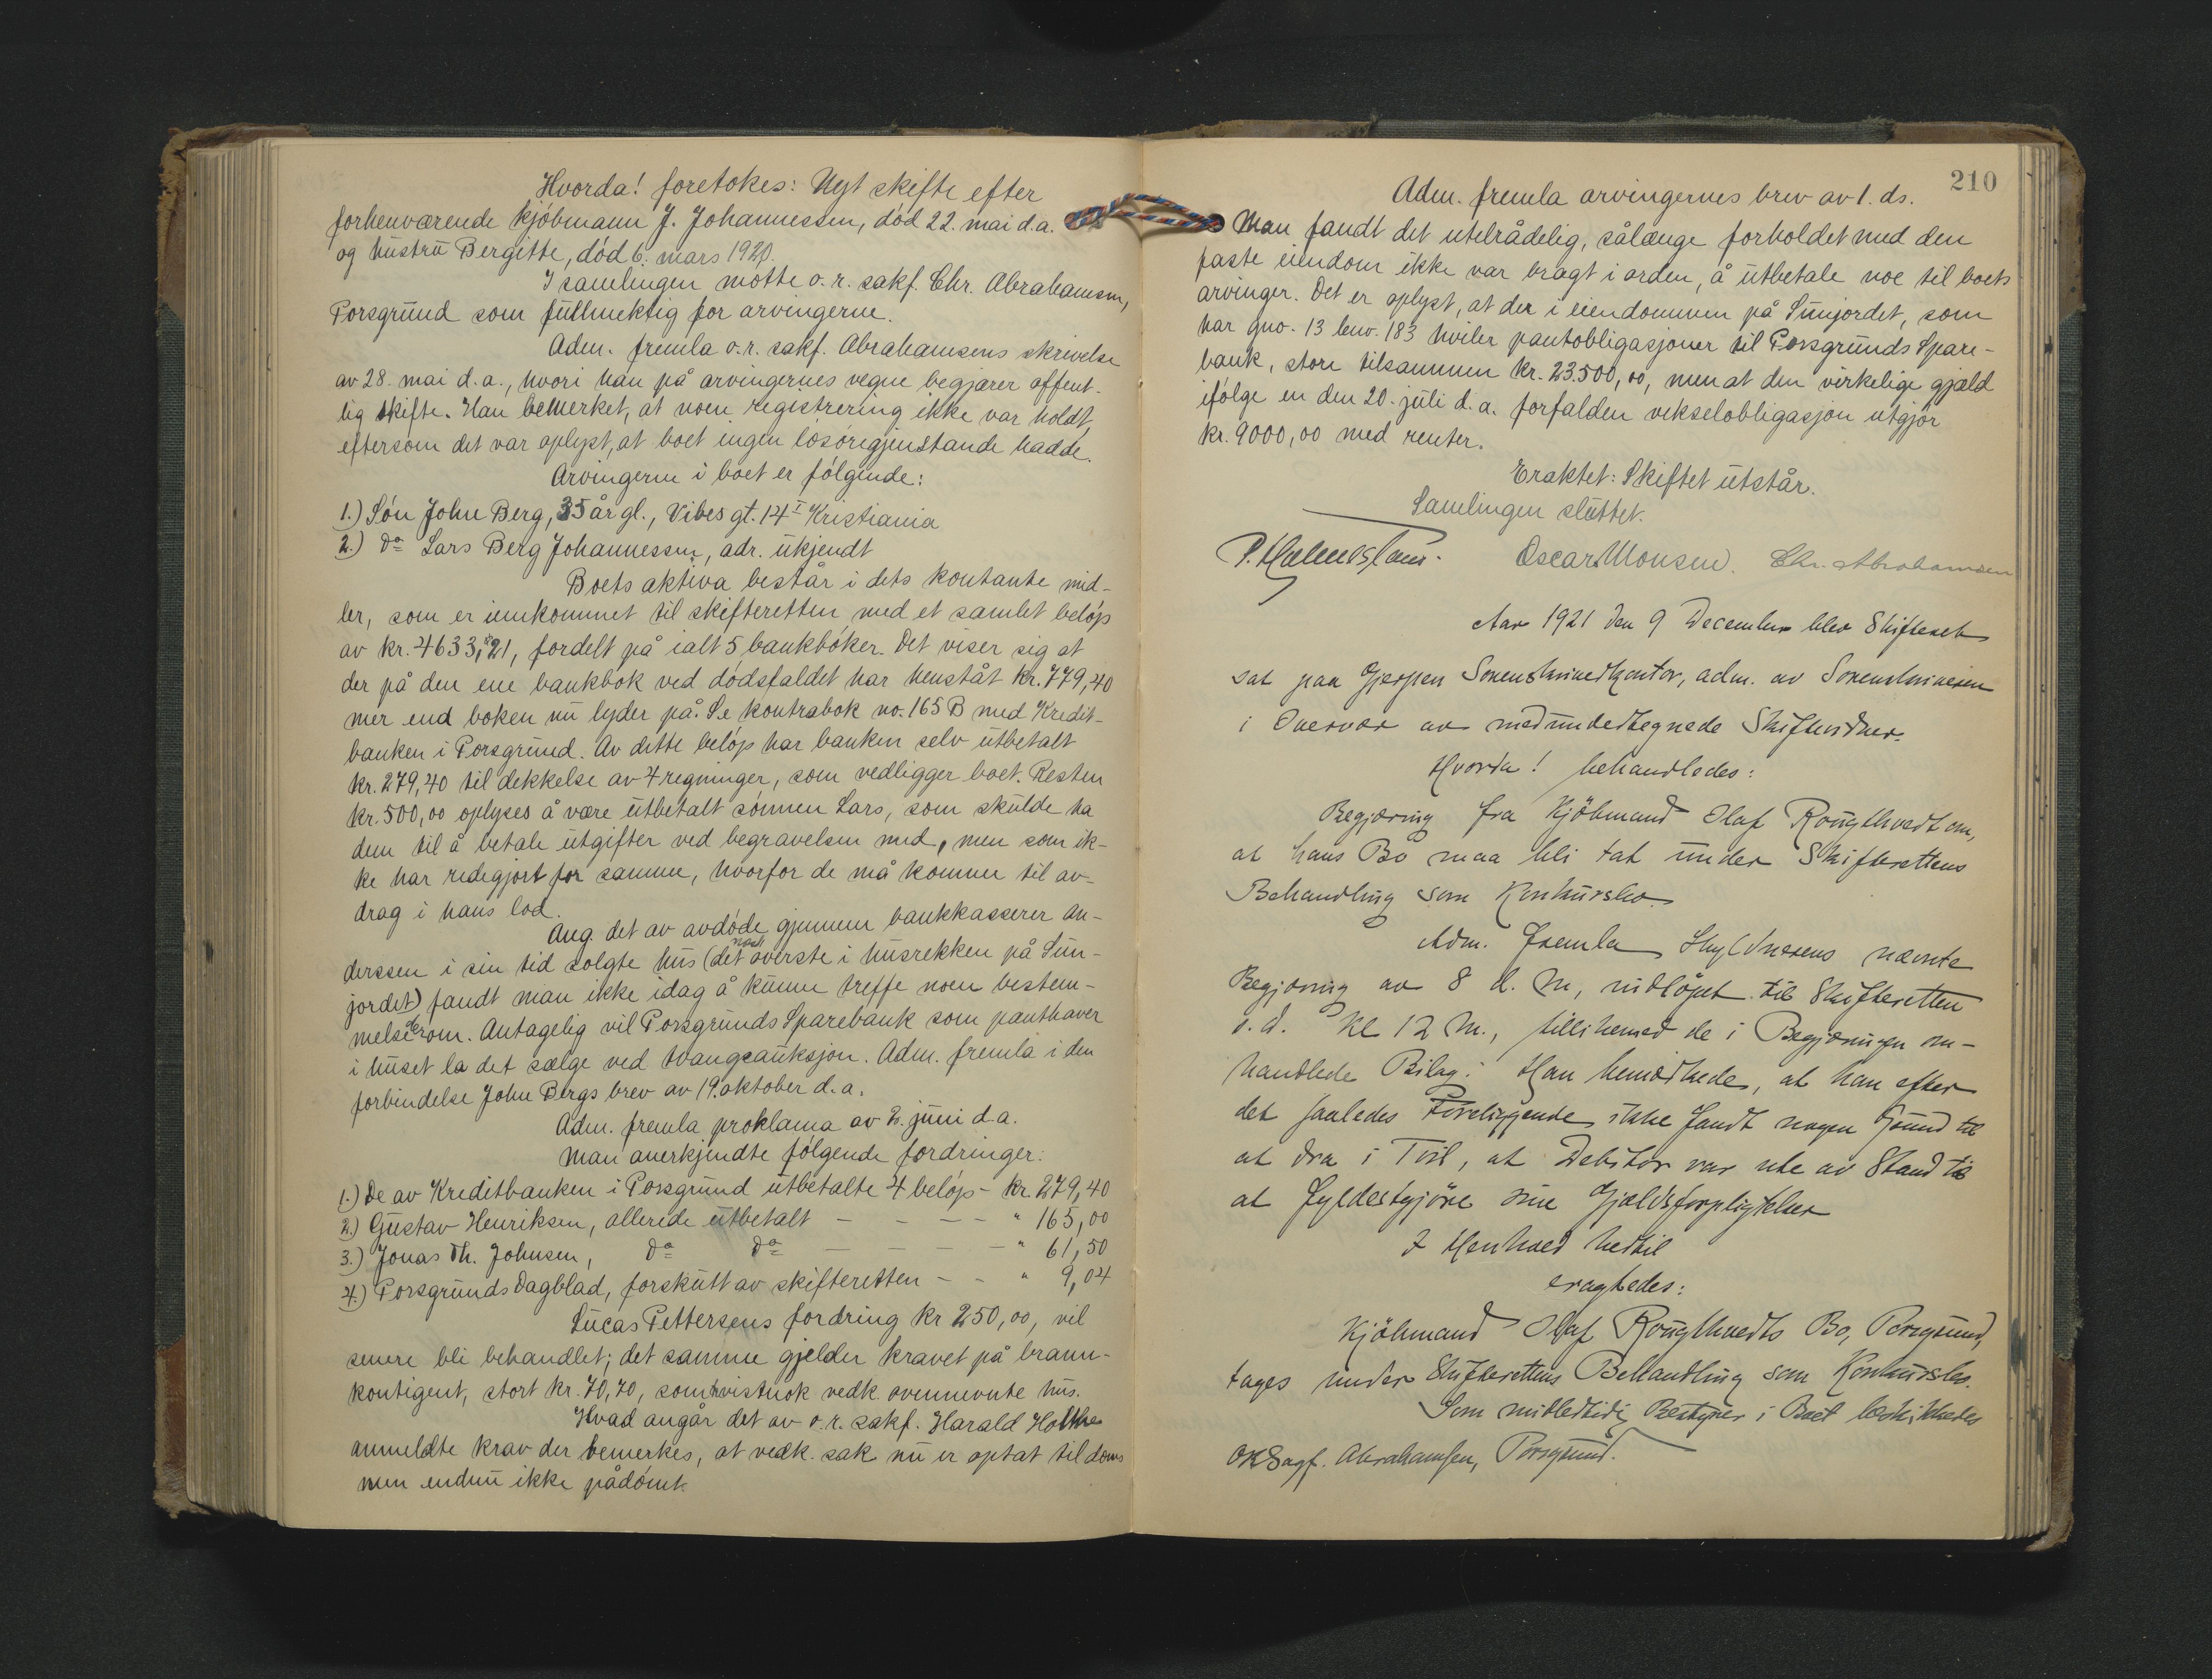 Hvorda! foretokes: Uyt skifte efter
forhenværende kjøbmann J. Johannessen, død 22. mai d.a.
og hustru Bergitte, død 6. mars 1920.
I samlingen møtte o.r. sakf. Chr. Abrahamsen,
Porsgrund som fullmektig for arvingerne.
Adm. fremla o.r. sakf. Abrahamsens skrivelse
av 28. mai d.a., hvori han på arvingernes vegne begjærer offent-
lig skifte. Han bemerket, at noen registrering ikke var holdt,
eftersom det var oplyst, at boet ingen løsøregjenstande hadde.
Arvingerne i boet er følgende:
1.) Søn John Berg, 35 år gl., Vibes gt. 14 I Kristiania
2.) do Lars Berg Johannessen, adr. ukjendt
Boets aktiva består i dets kontante mid-
ler, som er innkommet til skifteretten med et samlet beløp
av kr. 4633,21, fordelt på ialt 5 bankbøker. Det viser sig at
der på den ene bankbok ved dødsfaldet har henståt kr. 779,40
mer end boken nu lyder på. Se kontrabok no. 165 B med Kredit-
banken i Porsgrund. Av dette beløp har banken selv utbetalt
kr. 279,40 til dekkelse av 4 regninger, som vedligger boet. Resten
kr. 500,00 oplyses å være utbetalt sønnen Lars, som skulde ha
dem til å betale utgifter ved begravelsen med, men som ik-
ke har redegjort for samme, hvorfor de må komme til av-
drag i hans lod.
Ang. det av avdøde gjennem bankkasserer An-
derssen i sin tid solgte hus (det næst øverste i husrekken på Sun-
jordet) fandt man ikke idag å kunne treffe noen bestem-
melse om. Antagelig vil Porsgrunds Sparebank som panthaver
i huset la det sælge ved tvangsauksjon. Adm. fremla i den
forbindelse John Bergs brev av 19. oktober d.a.
Adm. fremla proklama av 2. juni d.a.
Man anerkjendte følgende fordringer:
1.) De av Kreditbanken i Porsgrund utbetalte 4 beløp - kr. 279,40
2.) Gustav Henriksen, allerede utbetalt - - - - " 165,00
3.) Jonas Th. Johnsen, do do - - - - " 61,50
4.) Porsgrunds Dagblad, forskutt av skifteretten - - " 9,04
Lucas Pettersens fordring kr 250,00, vil
senere bli behandlet; det samme gjelder kravet på brann-
kontigent, stort kr. 70,70, som vistnok vedk. ovennevnte hus.
Hvad angår det av o.r. sakf. Harald Holthe
anmeldte krav der bemerkes, at vedk. sak nu er optat til doms
men endnu ikke pådømt.
210
Adm. fremla arvingernes brev av 1. ds.
Man fandt det utilrådelig, sålænge forholdet med den
faste eiendom ikke var bragt i orden, å utbetale noe til boets
arvinger. Det er oplyst, at der i eiendommen på Sunjordet, som
har gno. 13 bno. 183 hviler pantobligasjoner til Porsgrunds Spare-
bank, store tilsammen kr. 23.500,00, men at den virkelige gjæld
ifølge en den 20. juli d.a. forfalden vekselobligasjon utgjør
kr. 9000,00 med renter.
Eraktet: Skiftet utstår.
Samlingen sluttet.
Oscar Monsen. Chr. Abrahamsen
Aar 1921 den 9 December blev Skifteret
sat paa Gjerpen Sorenskriverkontor, adm. av Sorenskriveren
i Overvær av medundertegnede Skiftevidner.
Hvorda! behandledes:
Begjæring fra Kjöbmand Olaf Rougthvedt om,
at hans Bo maa bli tat under Skifterettens
Behandling som Konkursbo.
Adm. fremla Skyldnerens nævnte
Begjæring av 8 d. M., indløpet til Skifteretten
s. d. Kl 12 M., tillikemed de i Begjæringen om-
handlede Bilag. Han bemærkede, at han efter
det saaledes Foreliggende ikke fandt nogen Grund til
at dra i Tvil, at Debitor var ute av Stand til
at fyldestgjøre sine Gjældsforpligtelser
I Henhold hertil
eragtedes:
Kjöbmand Olaf Rougthvedts Bo, Porsgrund,
tages under Skifterettens Behandling som Konkursbo.
Som midlertidig Bestyrer i Boet beskikkedes
OR Sagf. Abrahamsen, Porsgrund.